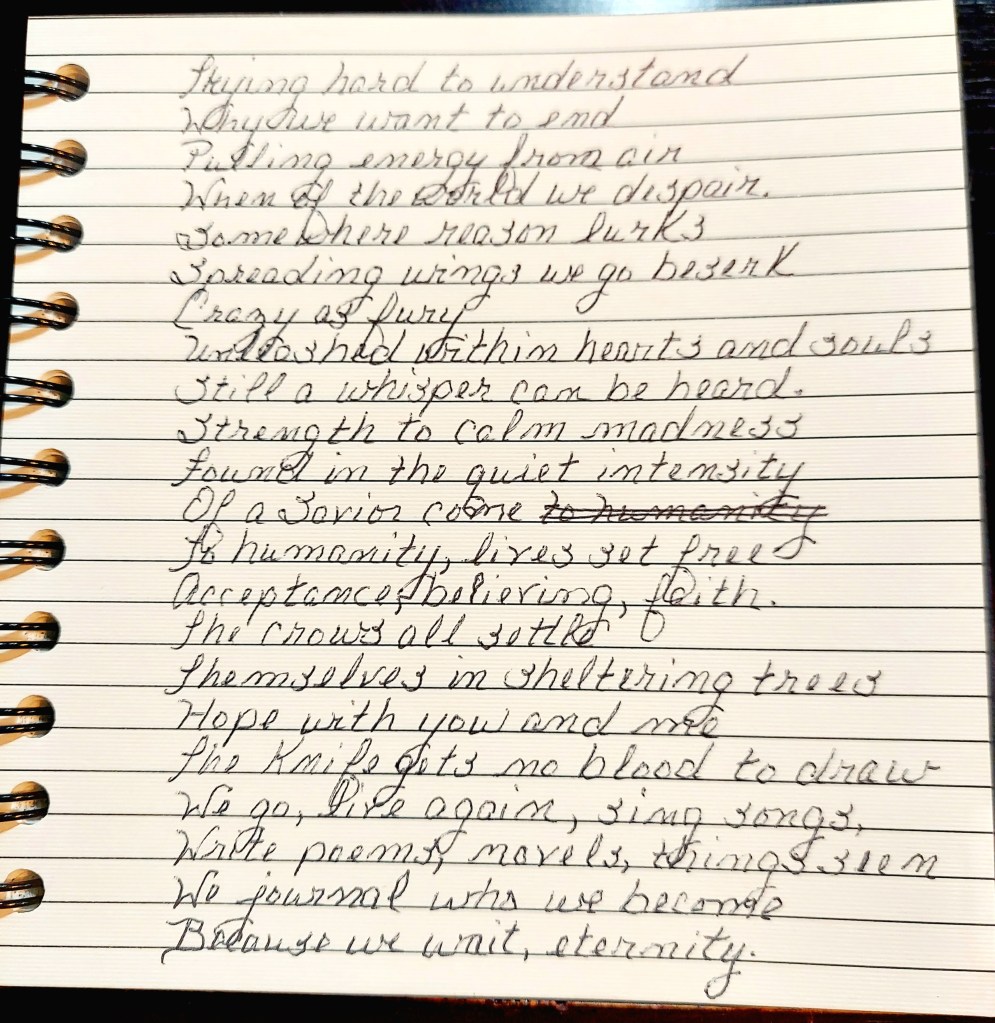 Trying hard to understand
Why we want to end
Pulling energy from air
When of the world we despair.
Somewhere reason lurks
Spreading wings we go beserk
Crazy as fury
Unleashed within hearts and souls
Still a whisper can be heard.
Strength to calm madness
found in the quiet intensity
Of a Savior come to humanity
To humanity, lives set free
Acceptance, believing, faith.
The crows all settle
Themselves in sheltering trees
Hope with you and me
The Knife gets no blood to draw
We go, live again, sing songs,
Write poems, novels, things seen
We journal who we become
Because we wait, eternity.